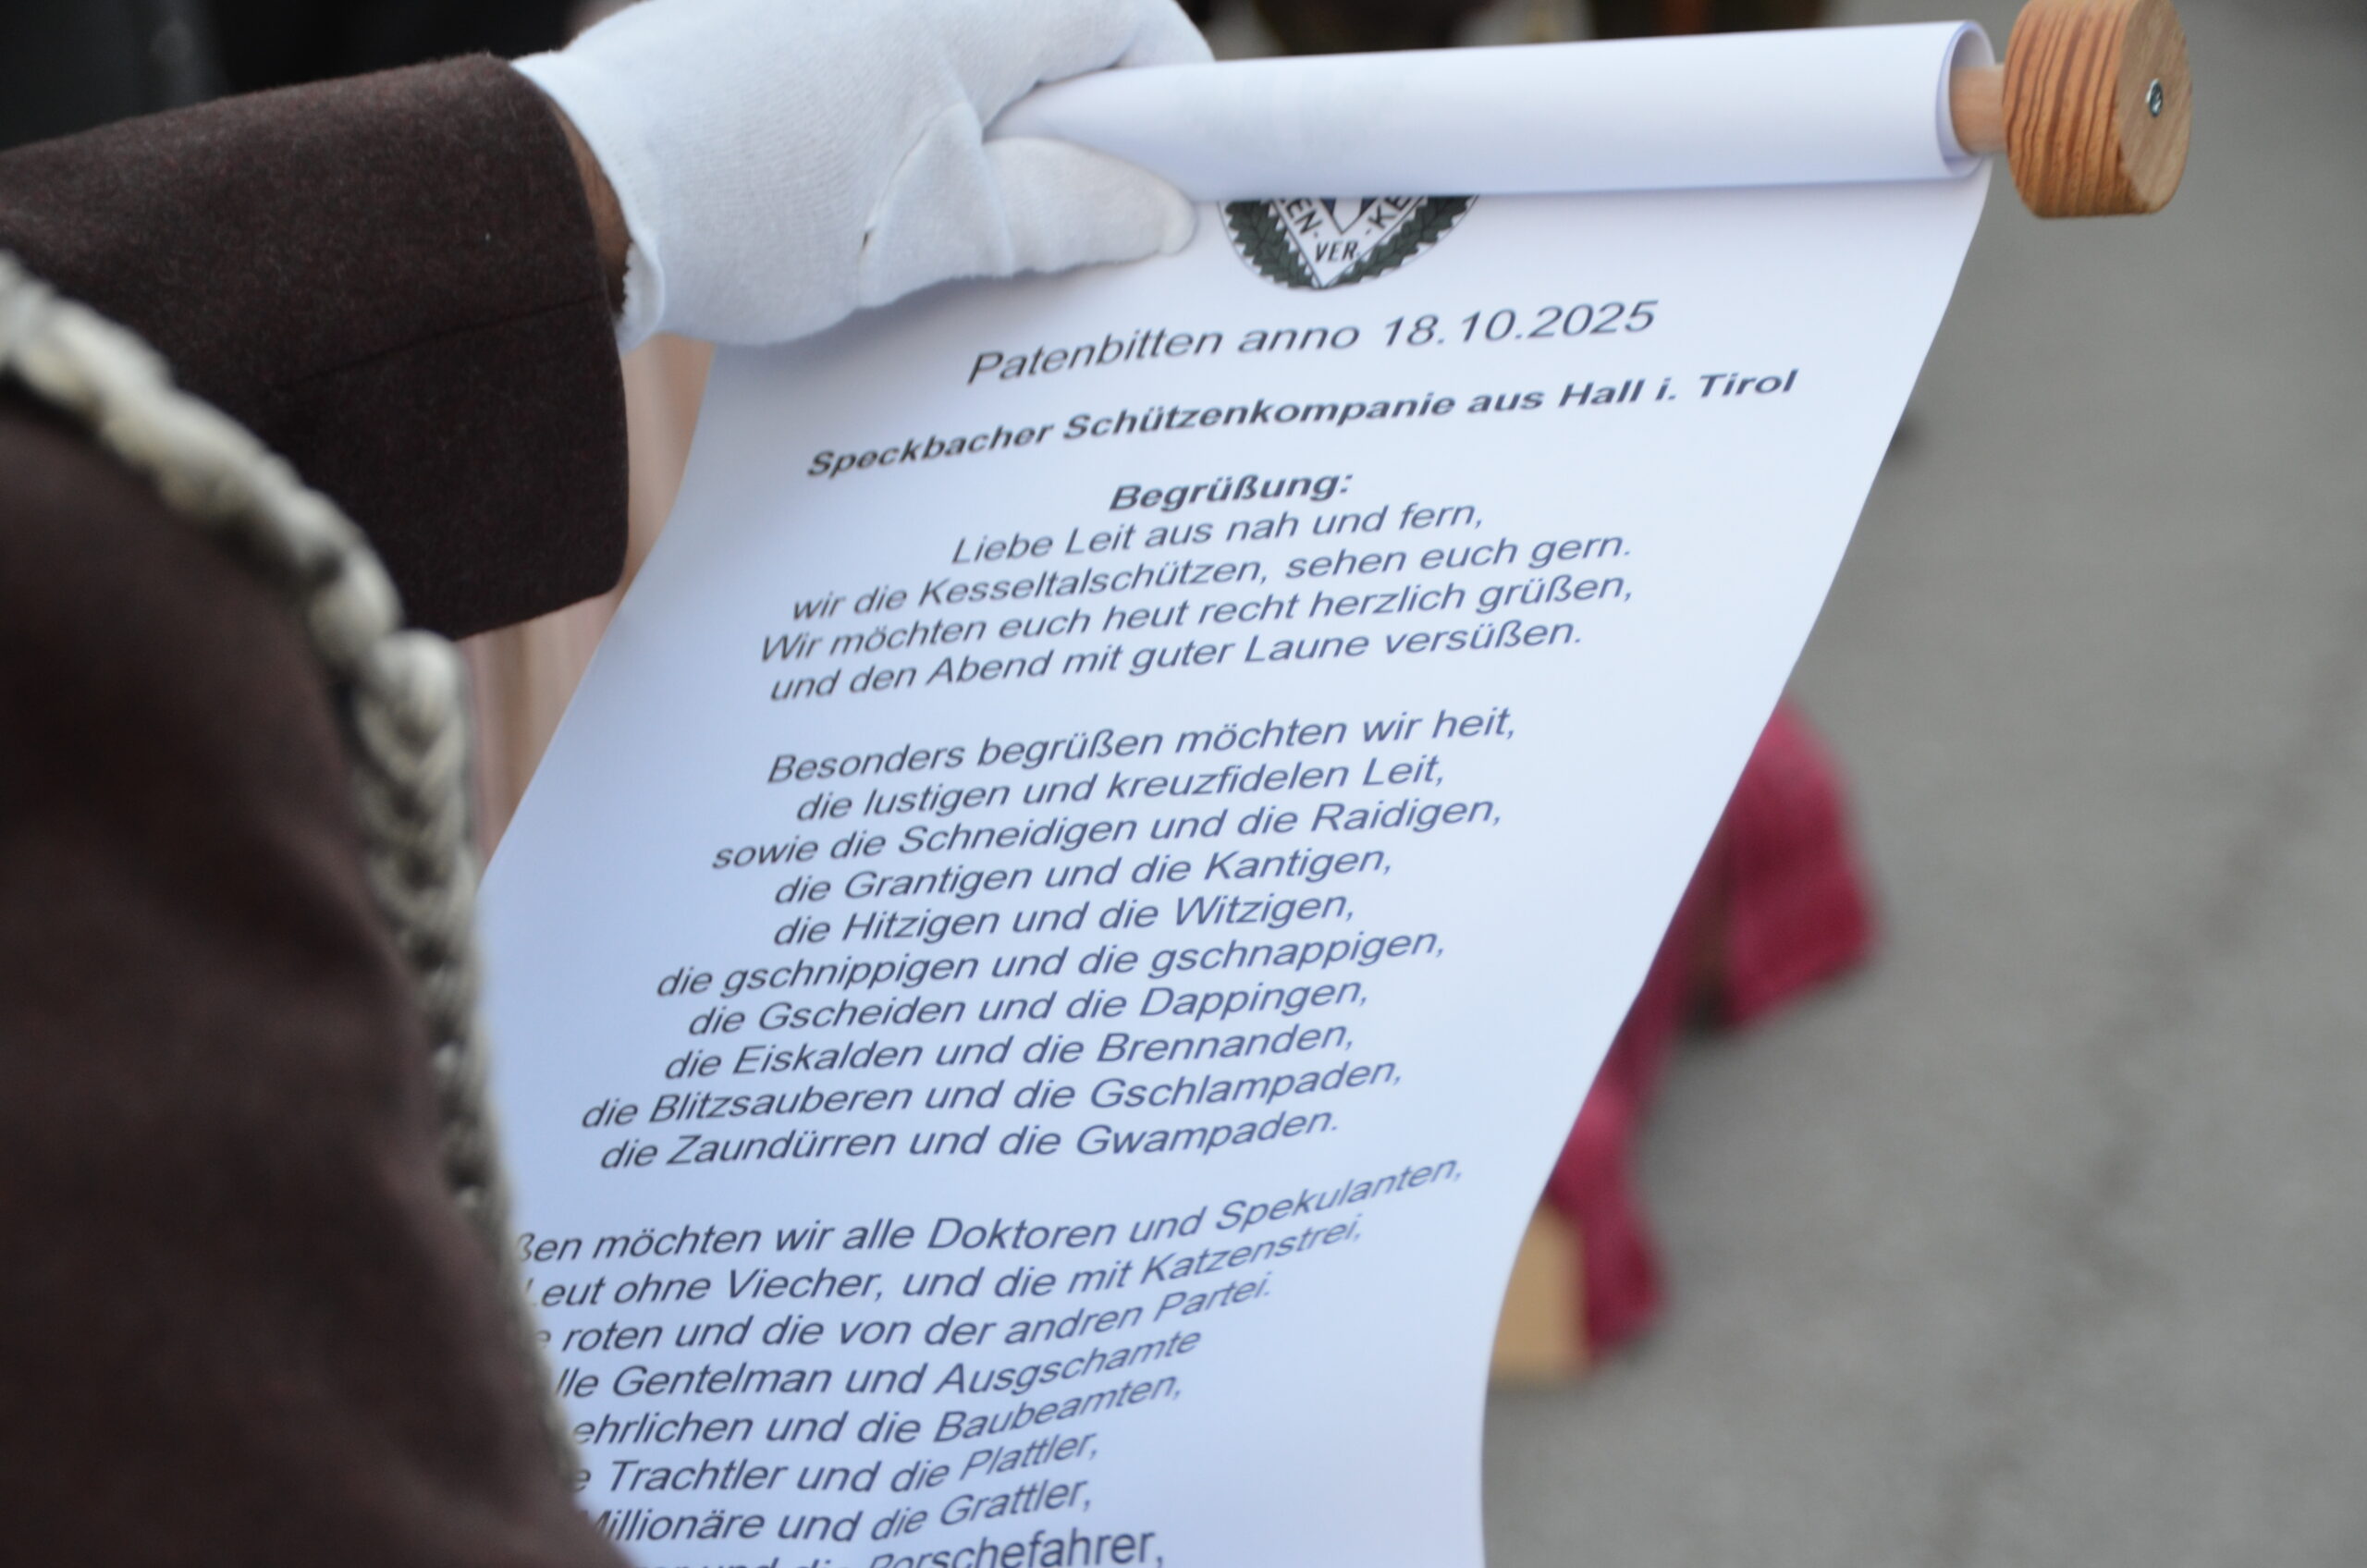 VER.
Patenbitten anno 18.10.2025
Speckbacher Schützenkompanie aus Hall i. Tirol
Begrüßung:
Liebe Leit aus nah und fern,
wir die Kesseltalschützen, sehen euch gern.
Wir möchten euch heut recht herzlich grüßen,
und den Abend mit guter Laune versüßen.
Besonders begrüßen möchten wir heit,
die lustigen und kreuzfidelen Leit,
sowie die Schneidigen und die Raidigen,
die Grantigen und die Kantigen,
die Hitzigen und die Witzigen,
die gschnippigen und die gschnappigen,
die Gscheiden und die Dappingen,
die Eiskalden und die Brennanden,
die Blitzsauberen und die Gschlampaden,
die Zaundürren und die Gwampaden.
ßen möchten wir alle Doktoren und Spekulanten,
Leut ohne Viecher, und die mit Katzenstrei,
e roten und die von der andren Partei.
lle Gentelman und Ausgschamte
ehrlichen und die Baubeamten,
e Trachtler und die Plattler,
Millionäre und die Grattler,
und die Porschefahrer,